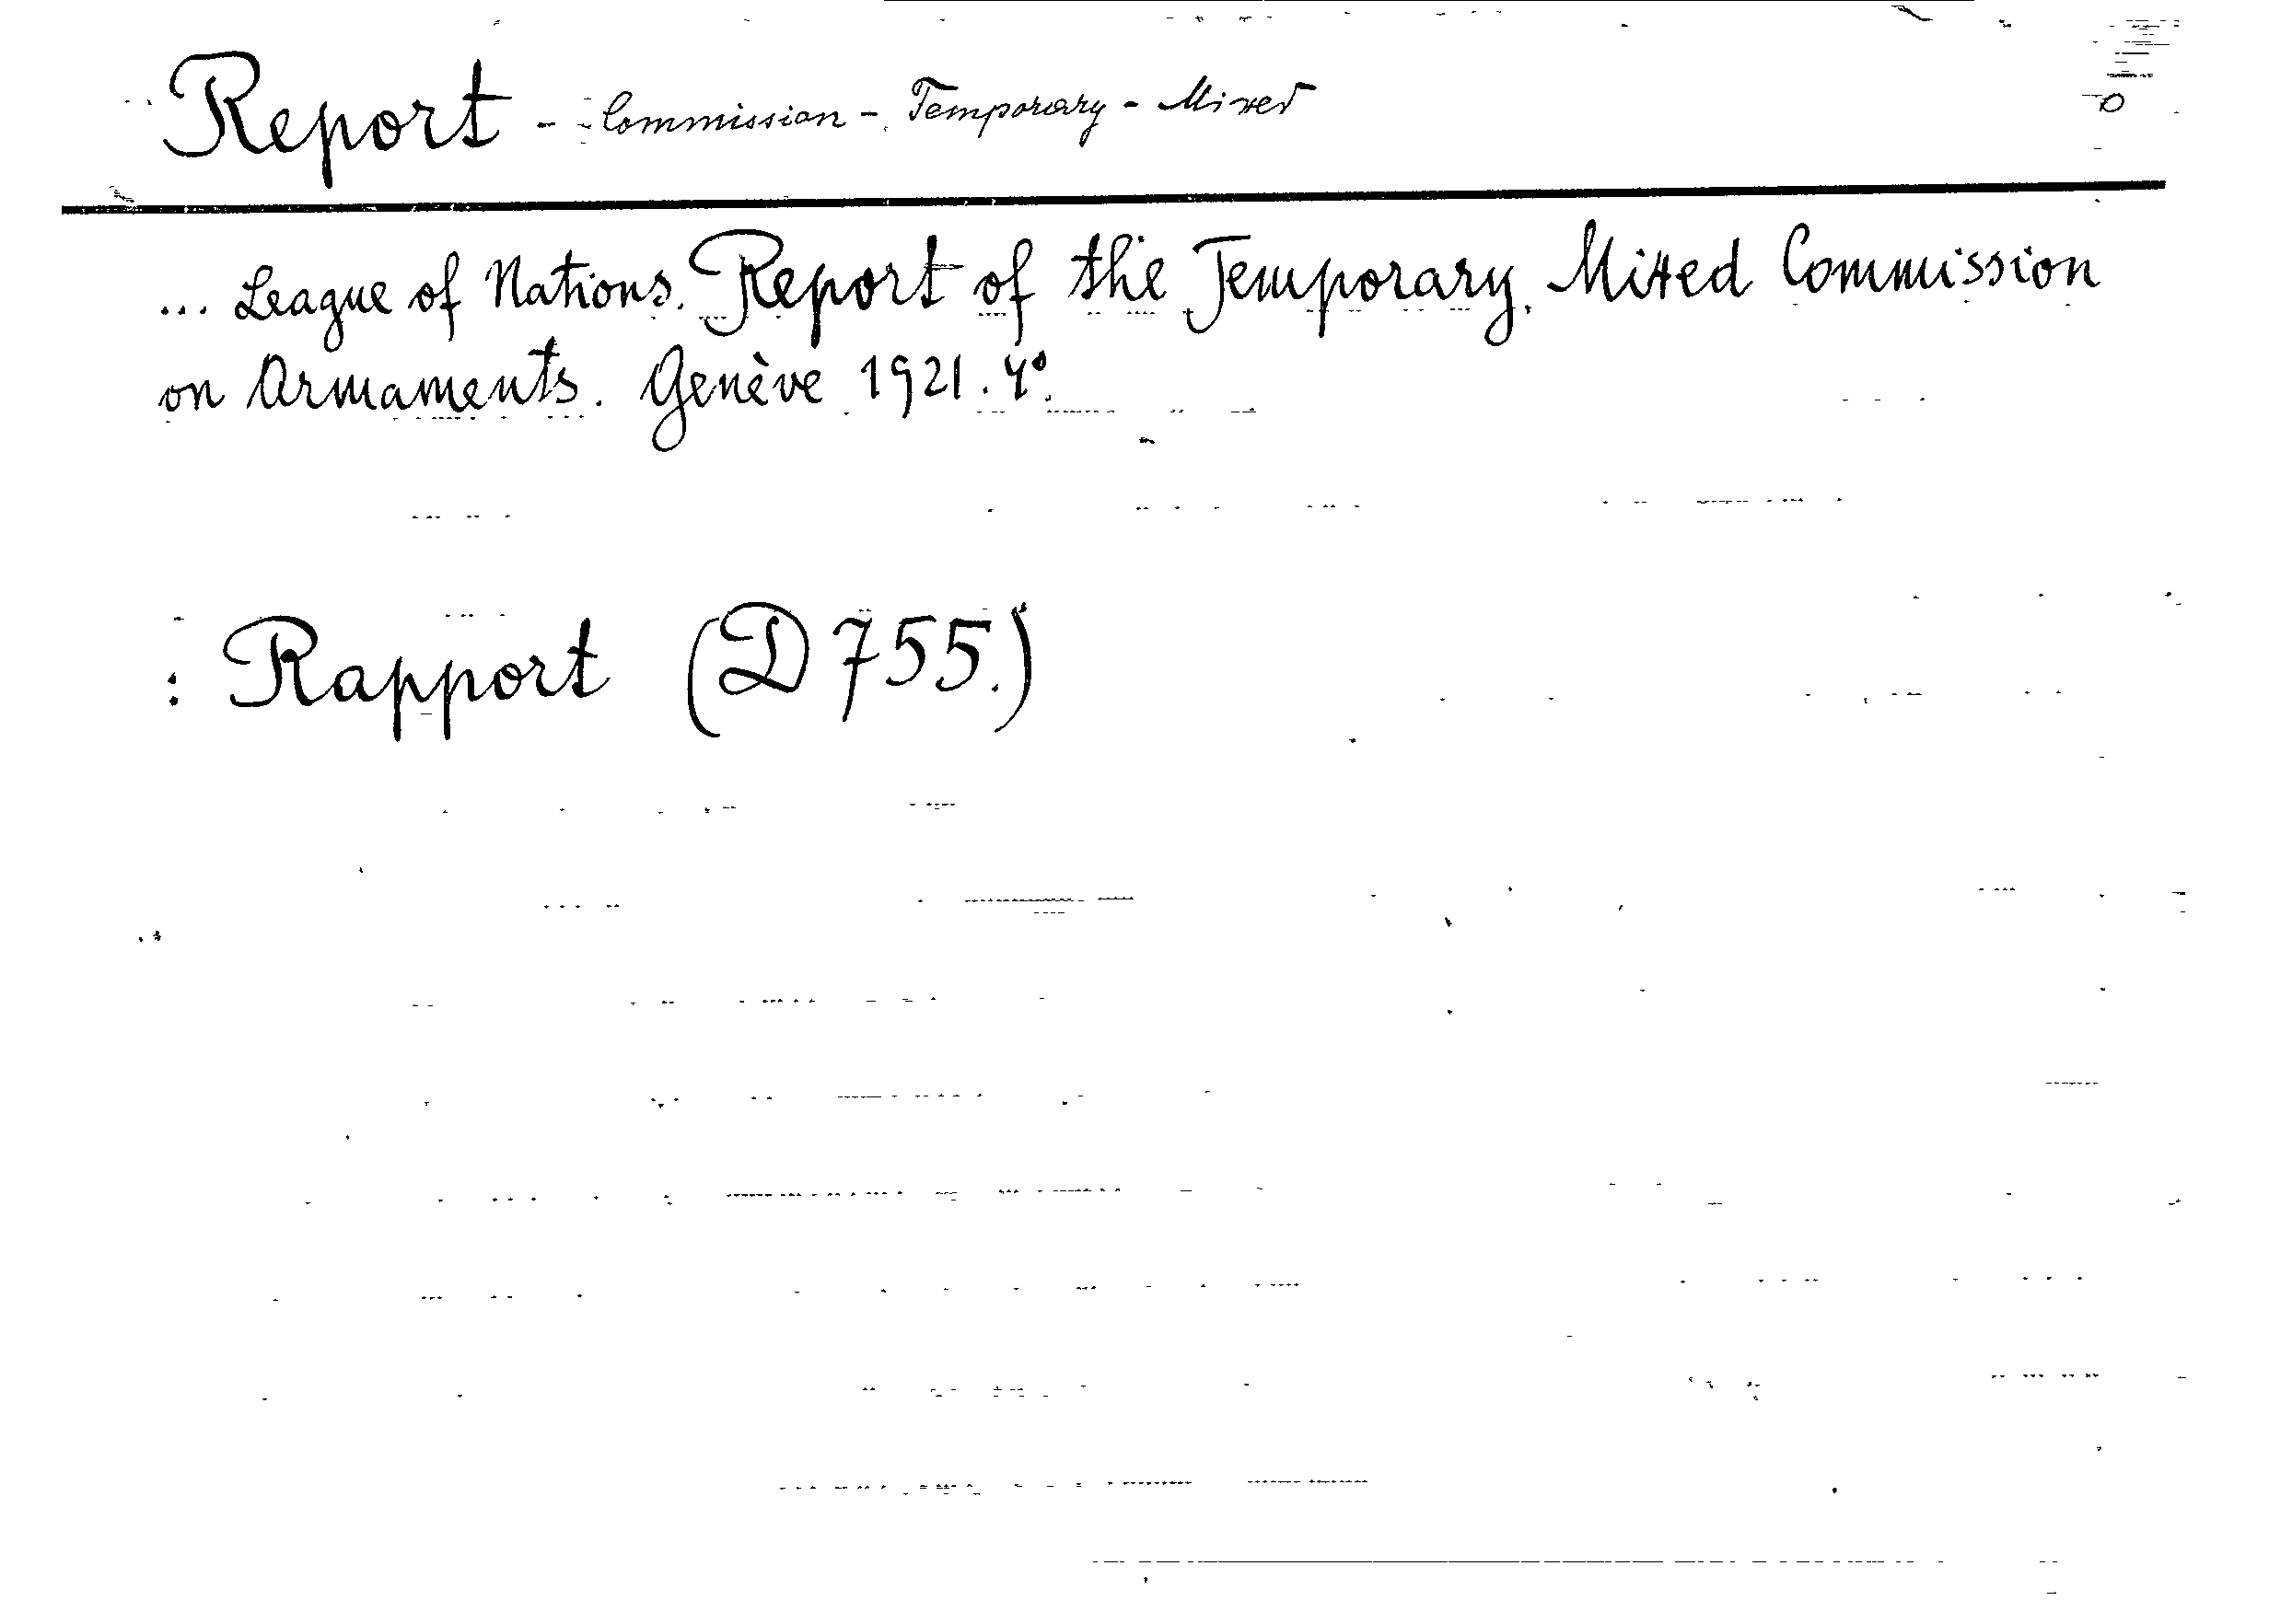 Report - Commission - Temporary - Mixed
... League of Nations. Report of the Temporary Mixed Commission
on Armaments. Genève 1921. 4°.
: Rapport (D 755.)